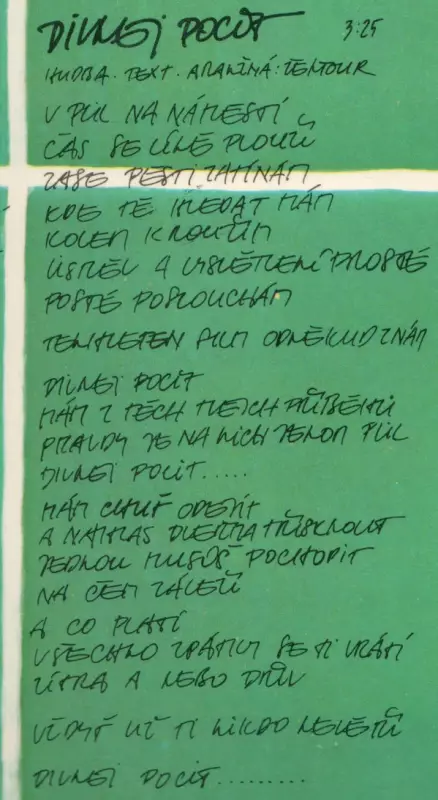 DIVNEJ POCIT 3:25
HUDBA. TEXT. ARANŽMÁ: TENTOUR
V PŮL NA NÁMĚSTÍ
ČAS SE LÍNĚ PLOUŽÍ
ZASE PĚSTI ZATÍNÁM
KDE TĚ HLEDAT MÁM
KOLEM KROUŽÍM
ÚSMĚV A VYSVĚTLENÍ PROSTÉ
POSTÉ POSLOUCHÁM
TENHLETEN FILM ODNĚKUD ZNÁM
DIVNEJ POCIT
MÁM Z TĚCH TVEJCH PŘÍBĚHŮ
PRAVDY JE NA NICH JENOM PŮL
DIVNEJ POCIT.....
MÁM CHUŤ ODEJÍT
A NAHLAS DVEŘMA TŘÍSKNOUT
JEDNOU MUSÍŠ POCHOPIT
NA ČEM ZÁLEŽÍ
A CO PLATÍ
VŠECHNO ZPÁTKY SE TI VRÁTÍ
ZÍTRA A NEBO DŘÍV
VŽDYŤ UŽ TI NIKDO NEVĚŘÍ
DIVNEJ POCIT.........